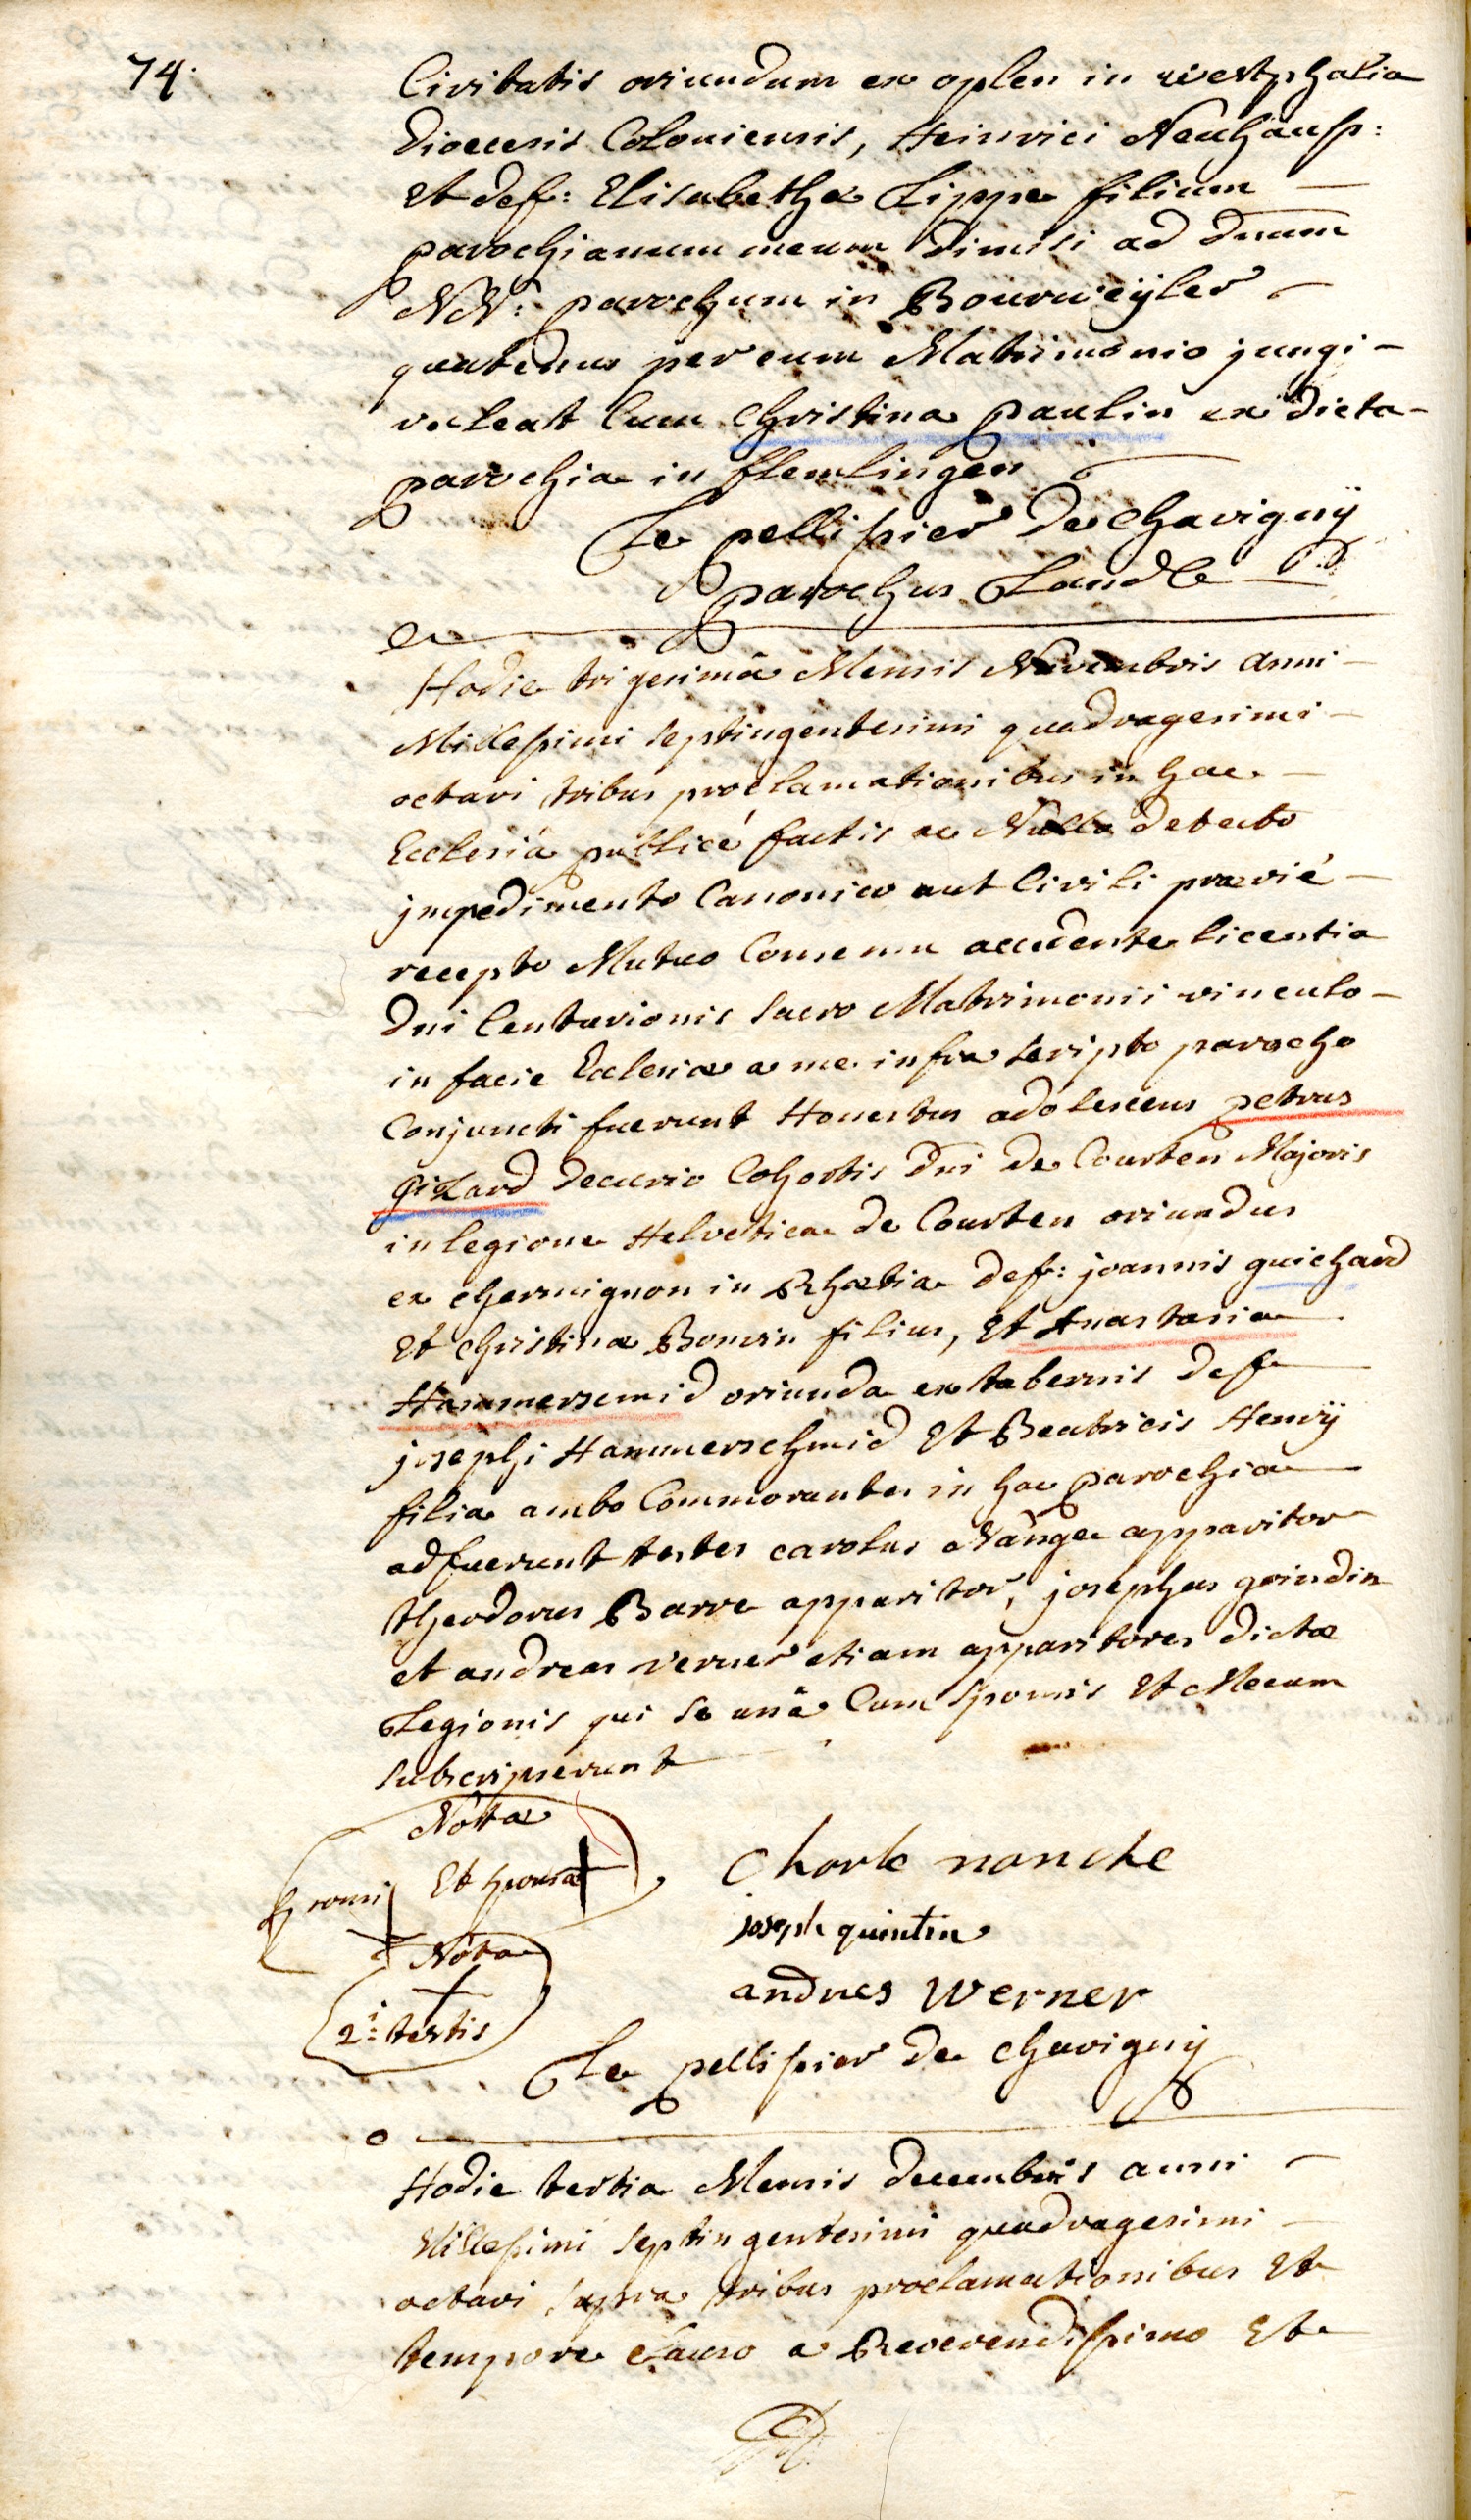 74.
Civitatis oriundum ex oplen in westphalia
Dioecesis Coloniensis, Heinrici Neuhausß:
Et def: Elisabetha Lippe filium —
parochianum meum Dimisi ad dnum
NN: parochum in Bourweÿler —
quatenus per eum Matrimonio jungi —
valeat Cum Christina paulin ex dicta —
parochia in flemlingen
Le pellissier De chavignÿ
parochus Land
Hodie trigesimâ Mensis Novembris anni —
Millesimi septingentesimi quadragesimi —
octavi tribus proclamationibus in hac —
Ecclesiâ publicé factis ac Nullo detecto
jmpedimento Canonico aut Civili prævié —
recepto Mutuo Consensu accedente licentia
Dni Centurionis sacro Matrimonii vinculo —
in facie Ecclesiæ a me infra scripto parocho
Conjuncti fuerunt Honestus adolescens petrus
Gilard Decurio Cohortis Dni De Courten Majoris
in legione Helvetica de Courten oriundus
ex chermignon in Rhætia def: joannis guichard
Et christina Bonvin filius, Et Anastasia
Hammersemid oriunda ex tabernis def
josephi Hammerschmid Et Beatricis Henrÿ
filia ambo Commorantes in hac parochia
adfuerunt testes carolus Nange apparitor
theodorus Barre apparitor, josephus geindin
et andreas verner etiam apparitores dictæ
Legionis qui se unâ Cum Sponsis Et Mecum
subscripserunt
Nota
Sponsi Et sponsæ
Nota
2i testis
Charle nanche
joseph quintin
andres Werner
Le pellissier De chavignÿ
Hodie tertia Mensis decembris anni —
Millesimi septingentesimi quadragesimi —
octavi supra tribus proclamationibus Et
tempore clauso a Reverendissimo Et